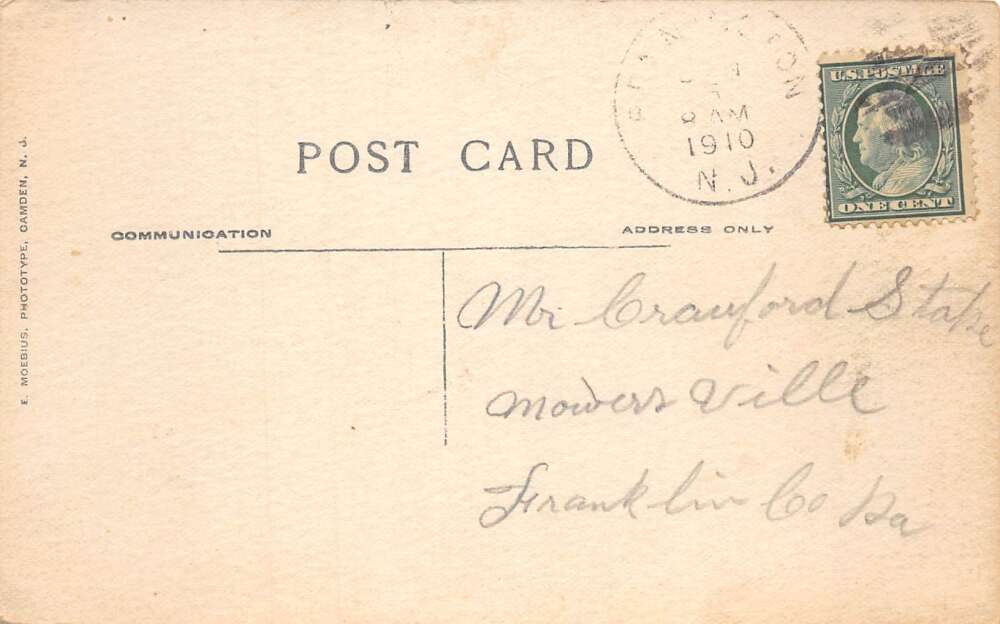 POST CARD
COMMUNICATION
ADDRESS ONLY
E. MOEBIUS, PHOTOTYPE, CAMDEN, N. J.
8 AM
1910
N. J.
U.S. POSTAGE
ONE CENT
Mr Crawford
Mowers Ville
Franklin Co Pa